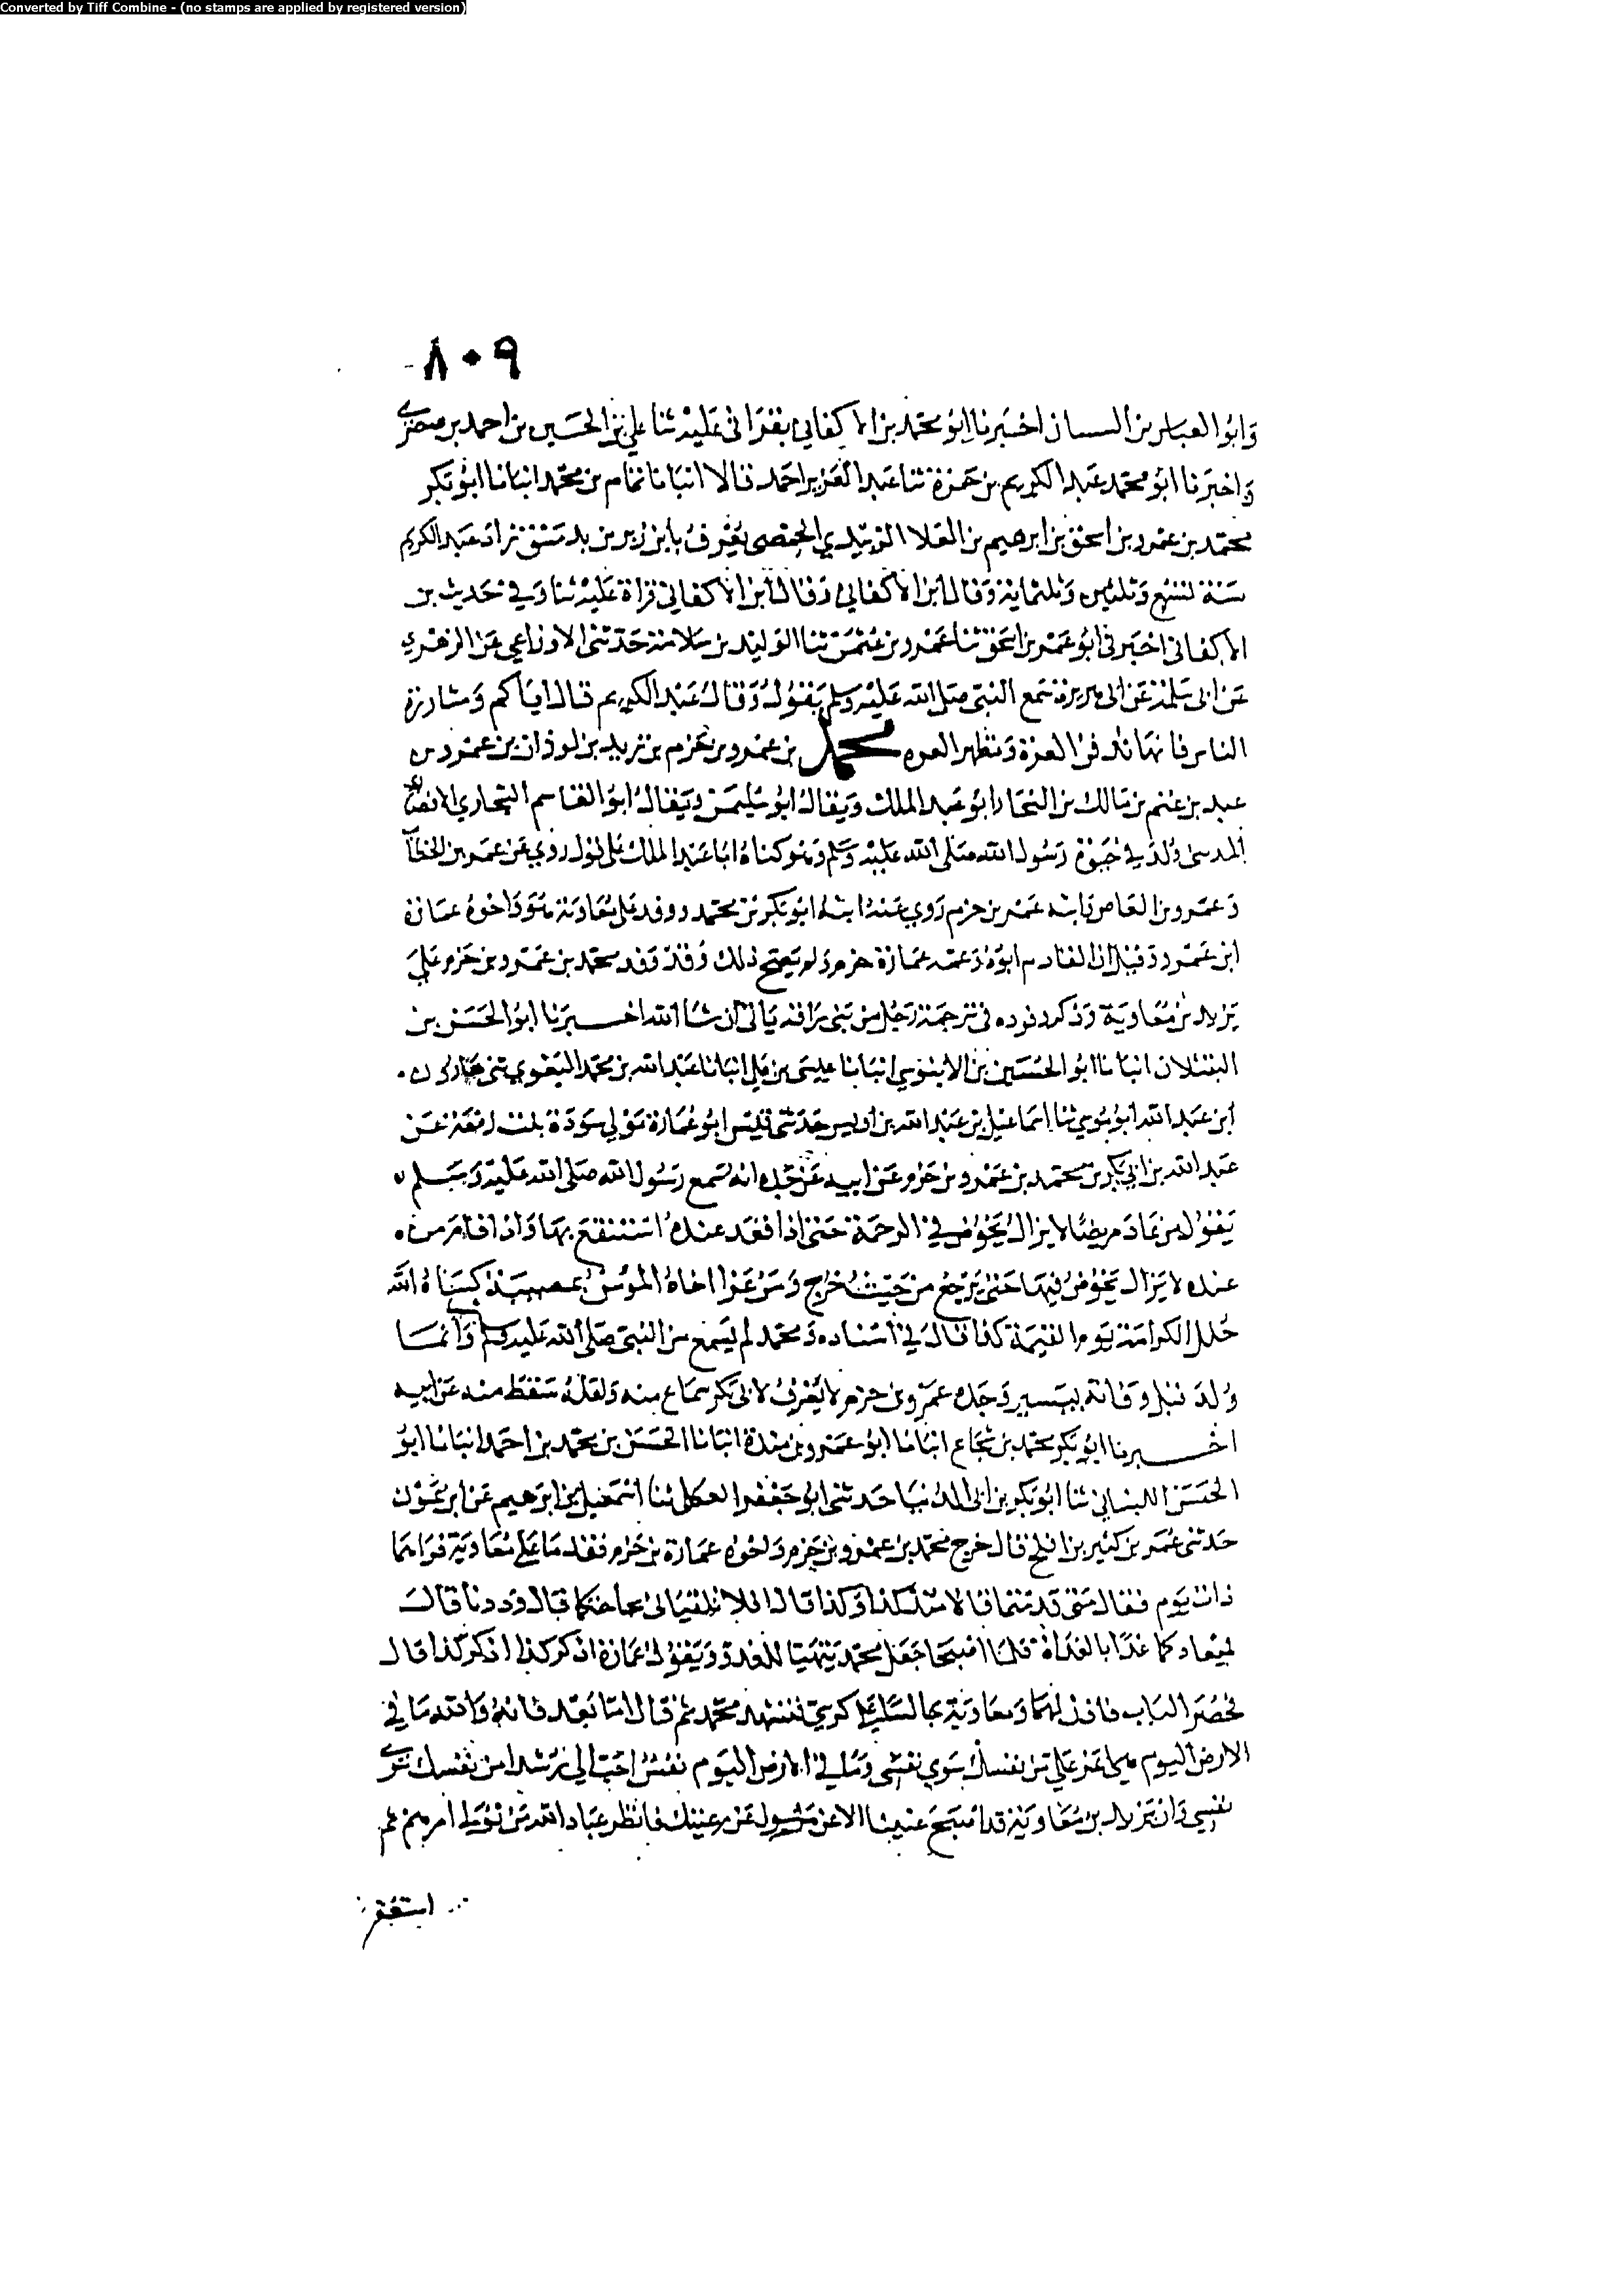 Converted by Tiff Combine - (no stamps are applied by registered version)
٨٠٩
وابوا العباس بن السمسار اخبرنا ابو محمد بن الاكفاني بقراتي عليه ثنا علي بن الحسين بن احمد بن صصرى
واخبرنا ابو محمد عبد الكريم بن حمزة ثنا عبد العزيز احمد قالا انبانا تمام بن محمد انبانا ابو بكر
محمد بن عمرو بن اسحق بن ابرهيم بن العلا الزبيدي الحمصي يعرف بابن زبريق بدمشق زاد عبد الكريم
سنة تسع وثلثين وثلثماية وقال ابن الاكفاني وقال ابن الاكفاني قراة عليه ثنا وفي حديث بن
الاكفاني اخبرني ابو عمرو بن اسحق ثنا عمرو بن عثمن ثنا الوليد بن سلامة حدثني الاوزاعي عن الزهري
عن ابي سلمة عن ابي هريرة سمع النبي صلى الله عليه وسلم يقول وقال عبد الكريم قال اياكم ومشارزة
الناس فانها تدفن الغرة وتظهر العره محمد بن عمرو بن حزم بن زيد بن لوذان بن عمرو بن
عبد بن غنم بن مالك بن النجار ابو عبد الملك ويقال ابو سليمن ويقال ابو القاسم النجاري الانصاري
المدني ولد في حيوة رسول الله صلى الله عليه وسلم وهو كناه ابا عبد الملك على قول روي عن عمر بن الخطاب
وعمرو بن العاص وابيه عمرو بن حزم روي عنه ابنه ابو بكر بن محمد ووفد على معاوية هو واخوه عمارة
ابن عمرو وقيل ان القادم ابوه وعمه عمارة حزم ولم يصح ذلك وقد وفد محمد بن عمرو بن حزم علي
يزيد بن معاوية وذكر وفوده في ترجمة رجل من بني سراقة ياتي ان شا الله اخبرنا ابو الحسن بن
البقشلان انبانا ابو الحسين بن الابنوسي انبانا عيسى بن علي انبانا عبد الله بن محمد البغوي ثني هارون
ابن عبد الله ابو موسي ثنا اسماعيل بن عبد الله بن اويس حدثني قيس ابو عمارة مولي سودة بنت زمعة عن
عبد الله بن ابي بكر بن محمد بن عمرو بن حزم عن ابيه عن جده انه سمع رسول الله صلى الله عليه وسلم
يقول من عاد مريضا لا يزال يخوض في الرحمة حتى اذا قعد عنده استنقع بها واذا قام من
عنده لا يزال يخوض فيها حتى يرجع من حيث خرج ومن عزا اخاه المومن بمصيبة كساه الله
حلل الكرامة يوم القيمة كذا قال في اسناده ومحمد لم يسمع من النبي صلى الله عليه وسلم وانما
ولد قبل وفاته بيسير وجده عمرو بن حزم لا يعرف لابي بكر سماع منه ولعله سقط منه عن ابيه
اخبرنا ابو بكر محمد بن شجاع انبانا ابو عمرو بن مندة انبانا الحسن بن محمد بن احمد انبانا ابو
الحسن اللبناني ثنا ابو بكر بن ابي الدنيا حدثني ابو جعفر العكلي ثنا اسمعيل بن ابرهيم عن ابن عون
حدثني عمر بن كثير بن افلح قال خرج محمد بن عمرو بن حزم واخوه عمارة بن حزم فقدما على معاوية فراهما
ذات يوم فقال متى قدمتما قالا منذ كذا وكذا قال افلا تلقياني بحاجتكما قال وددنا قال
ميعادكما غدا بالغداة فلما اصبحا جعل محمد يتهيا للغدو ويقول عمارة اذكر كذا اذكر كذا قال
فحضرا الباب فاذن لهما ومعاوية جالس علي كرسي فتشهد محمد ثم قال اما بعد فانه والله ما في
الارض اليوم اعز علي من نفسك سوي نفسي وما في الارض اليوم نفس احب الي رشدا من نفسك سوى
نفسي وان يزيد بن معاوية قد اصبح غنيا الا عن كل خير وان الله سائلك عن رعيتك فانظر عباد الله من تولي امرهم ثم
استغفر